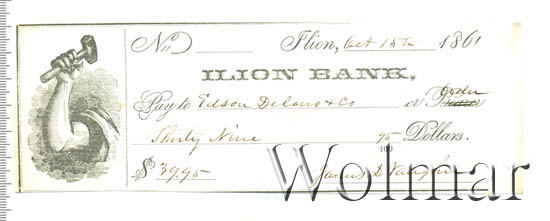 No. Ilion, Oct 18th 1861
ILION BANK,
Pay to Edson Delano & Co or Bearer Order
Thirty Nine 95/100 Dollars.
$39.95 James D Vaughn
Wolmar